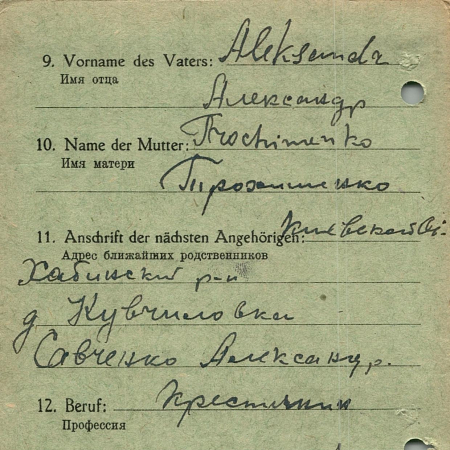 9. Vorname des Vaters: Aleksandr
Имя отца
Александр
10. Name der Mutter: Trochimenko
Имя матери
Трохименко
11. Anschrift der nächsten Angehörigen: Киевской Об.
Адрес ближайших родственников
Хабинский р-н
д Кувчиловка
Савченко Александр.
12. Beruf: Крестьянин
Профессия